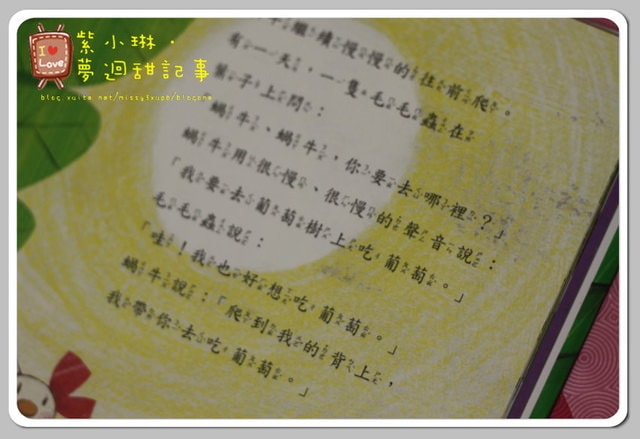 I
Love
紫小琳．
夢迴甜記事
牛繼續慢慢的往前爬。
有一天，一隻毛毛蟲在
葉子上問：
蝸牛、蝸牛，你要去哪裡？」
蝸牛用很慢、很慢的聲音說：
「我要去葡萄樹上吃葡萄。」
毛毛蟲說：
「哇！我也好想吃葡萄。」
蝸牛說：「爬到我的背上，
我帶你去吃葡萄。」